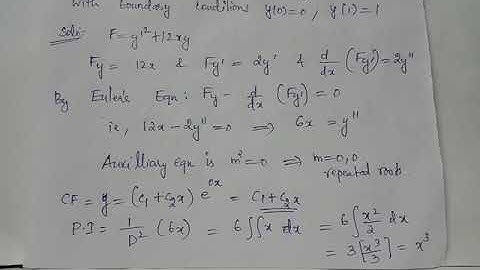 with boundary conditions y(0)=0, y(1)=1
Soln:- F = y'² + 12xy
Fy = 12x & Fy' = 2y' & d/dx (Fy') = 2y''
By Euler's Eqn: Fy - d/dx (Fy') = 0
ie, 12x - 2y'' = 0 ⟹ 6x = y''
Auxilliary eqn is m² = 0 ⟹ m = 0, 0
repeated roots.
CF = y = (C₁ + C₂x) e^0x = C₁ + C₂x
P.I = 1/D² (6x) = 6∫∫x dx = 6∫x²/2 dx
= 3[x³/3] = x³